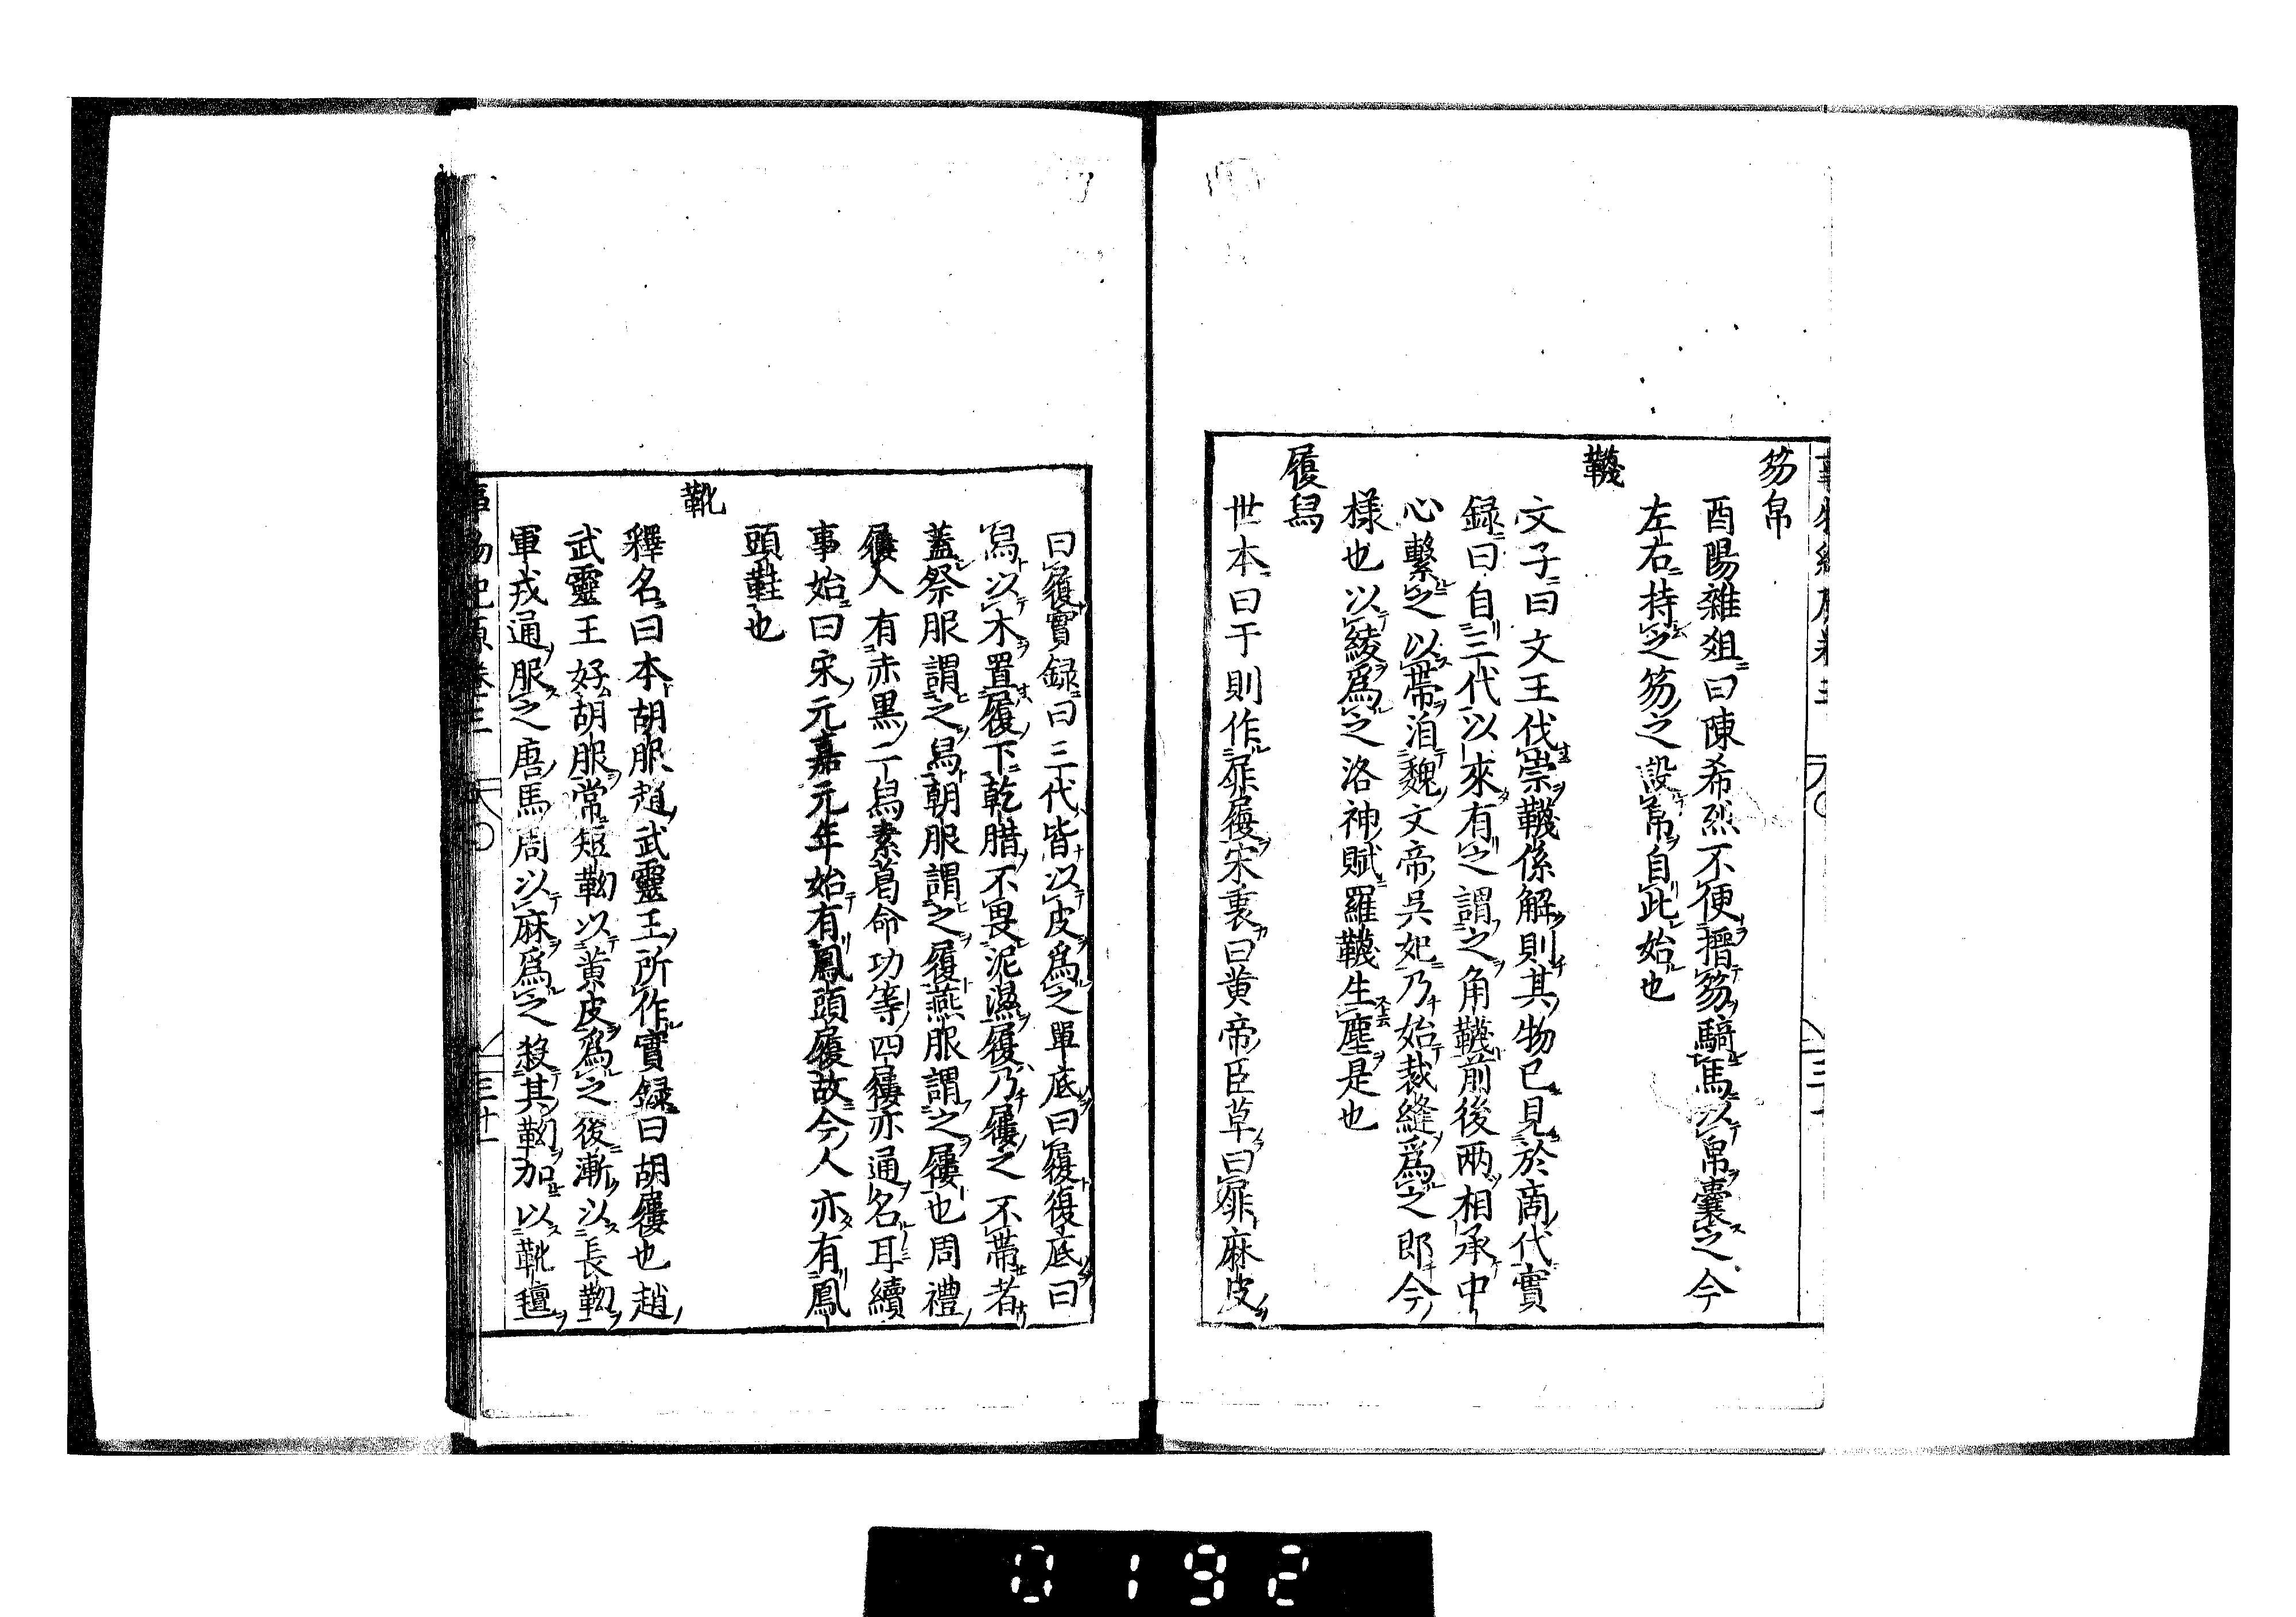 笏帛
酉陽雜爼曰陳希烈不便搢笏騎馬以帛囊之今
左右持之笏之設帛自此始也
韈
文子曰文王伐崇韈係解則其物已見於商代實
録曰自三代以來有之謂之角韈前後兩相承中
心繫之以帶洎魏文帝呉妃乃始裁縫爲之即今
樣也以綾爲之洛神賦羅韈生塵是也
履舄
世本曰于則作屝屨宋衷曰黄帝臣草曰屝麻皮
曰履實録曰三代皆以皮爲之單底曰履復底曰
舄以木置履下乾腊不畏泥濕履乃屨之不帶者
蓋祭服謂之舄朝服謂之履燕服謂之屨也周禮
屨人有赤黒二舄素葛命功等四屨亦通名耳續
事始曰宋元嘉元年始有鳳頭履故今人亦有鳳
頭鞋也
靴
釋名曰本胡服趙武靈王所作實録曰胡屨也趙
武靈王好胡服常短靿以黄皮爲之後漸以長靿
軍戎通服之唐馬周以麻爲之殺其靿加以靴氊
事物紀原卷三
三十一
0192